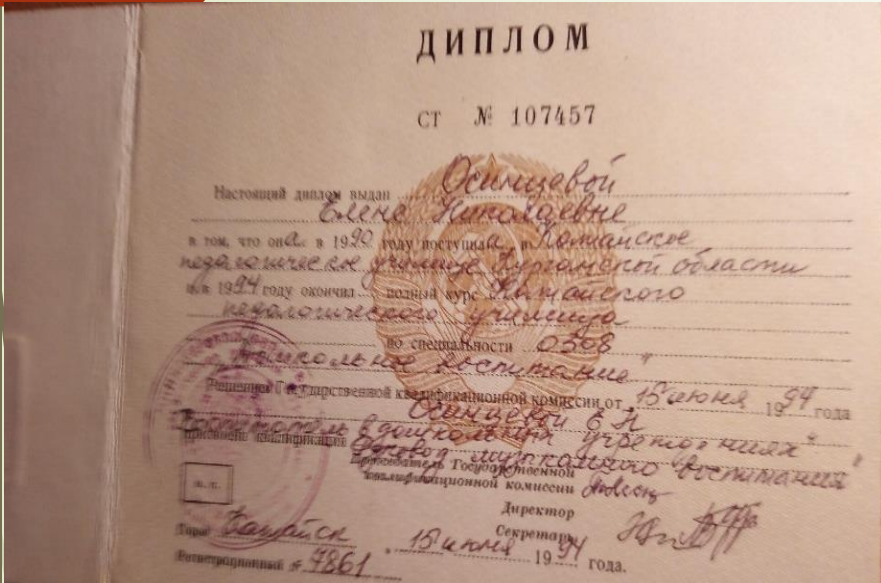 ДИПЛОМ
СТ № 107457
Настоящий диплом выдан Осинцевой
Елене Николаевне
в том, что она в 1990 году поступила в Катайское
педагогическое училище Курганской области
и в 1994 году окончила полный курс Катайского
педагогического училища
по специальности 0308
"Дошкольное воспитание"
Решением Государственной квалификационной комиссии от 15 июня 1994 года
Осинцевой Е Н
присвоена квалификация "Воспитатель в дошкольных учреждениях"
музыкального воспитания"
Председатель Государственной
квалификационной комиссии
Директор
Секретарь
м. п.
Город Катайск 15 июня 1994 года.
Регистрационный № 7861